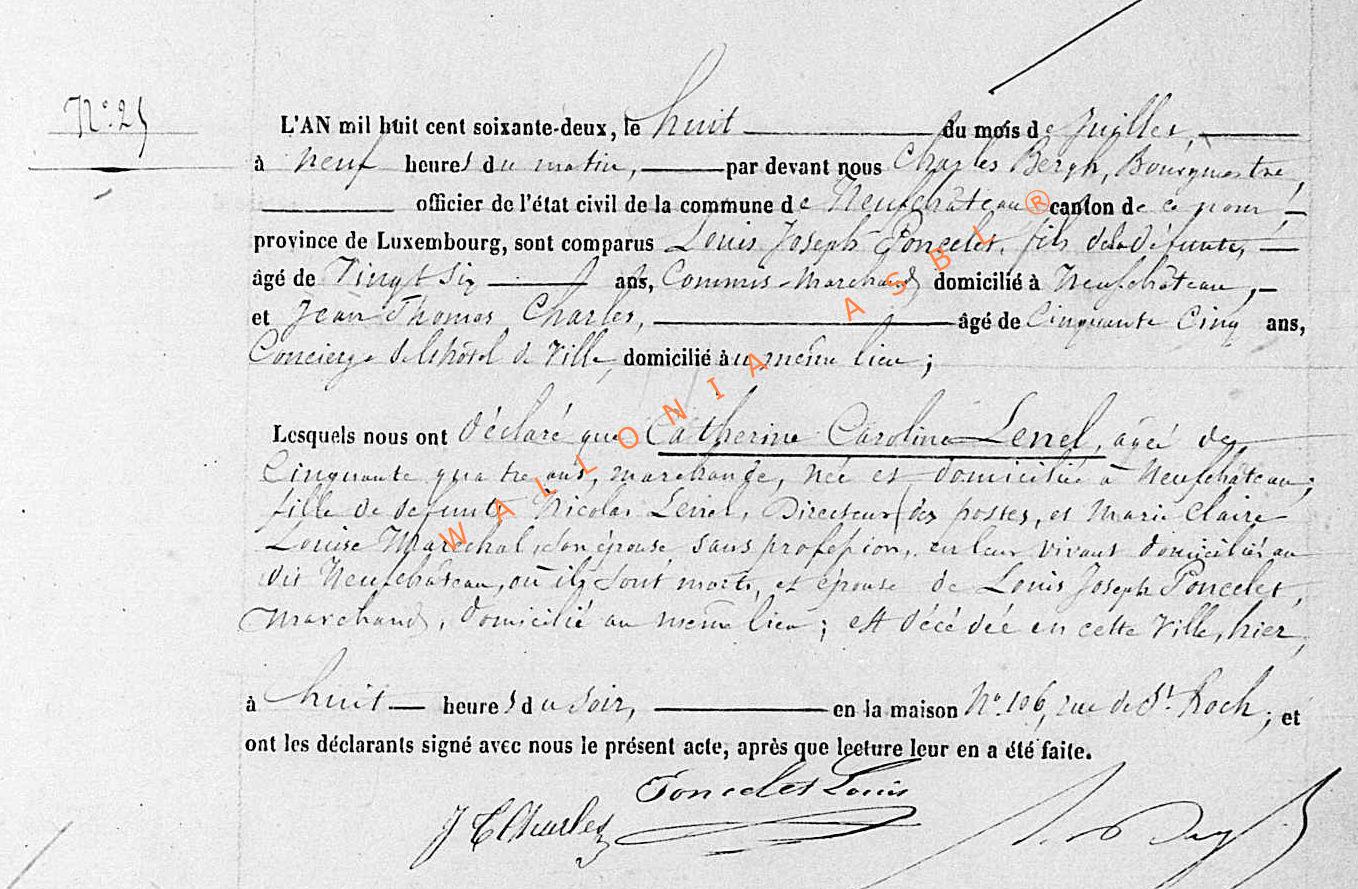 N° 25
L'AN mil huit cent soixante-deux, le huit du mois de Juillet,
à neuf heures du matin, par devant nous Charles Bergh, Bourgmestre,
officier de l'état civil de la commune de Neufchâteau canton de ce nom
province de Luxembourg, sont comparus Louis Joseph Poncelet, fils de la défunte,
âgé de Vingt six ans, Commis-Marchand domicilié à Neufchâteau,
et Jean Thomas Charles, âgé de Cinquante Cinq ans,
Concierge de l'hôtel de Ville, domicilié au même lieu;
Lesquels nous ont déclaré que Catherine Caroline Lenel, âgée de
Cinquante quatre ans, marchande, née et domiciliée à Neufchâteau;
fille de défunts Nicolas Lenel, Directeur des postes, et Marie Claire
Louise Maréchal, son épouse sans profession, en leur vivant domiciliés au
dit Neufchâteau, où ils sont morts, et épouse de Louis Joseph Poncelet,
Marchand, domicilié au même lieu; est décédée en cette Ville, hier,
à huit heures du soir, en la maison N° 106, rue de St Roch; et
ont les déclarants signé avec nous le présent acte, après que lecture leur en a été faite.
Poncelet Louis
J T Charles
WALLONIA ASBL ®